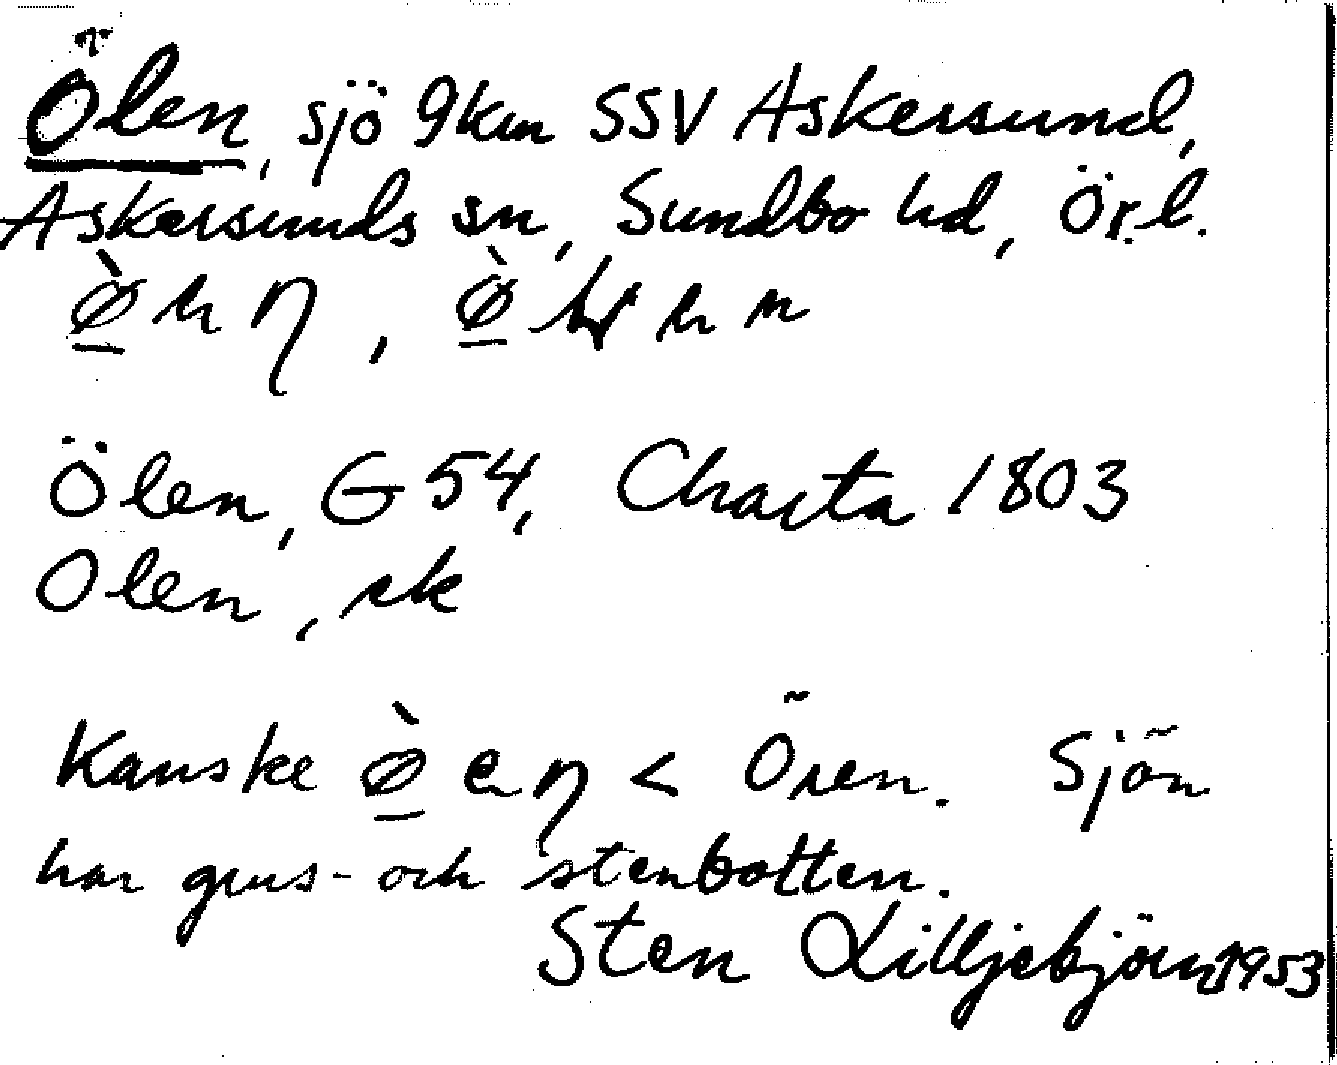 Ölen, sjö 9km SSV Askersund,
Askersunds sn, Sundbo hd, Ör.l.
Ölen, G 54, Charta 1803
Olen, sk
Kanske < Ören. Sjön
har grus- och stenbotten.
Sten Lilljebjörn 1953